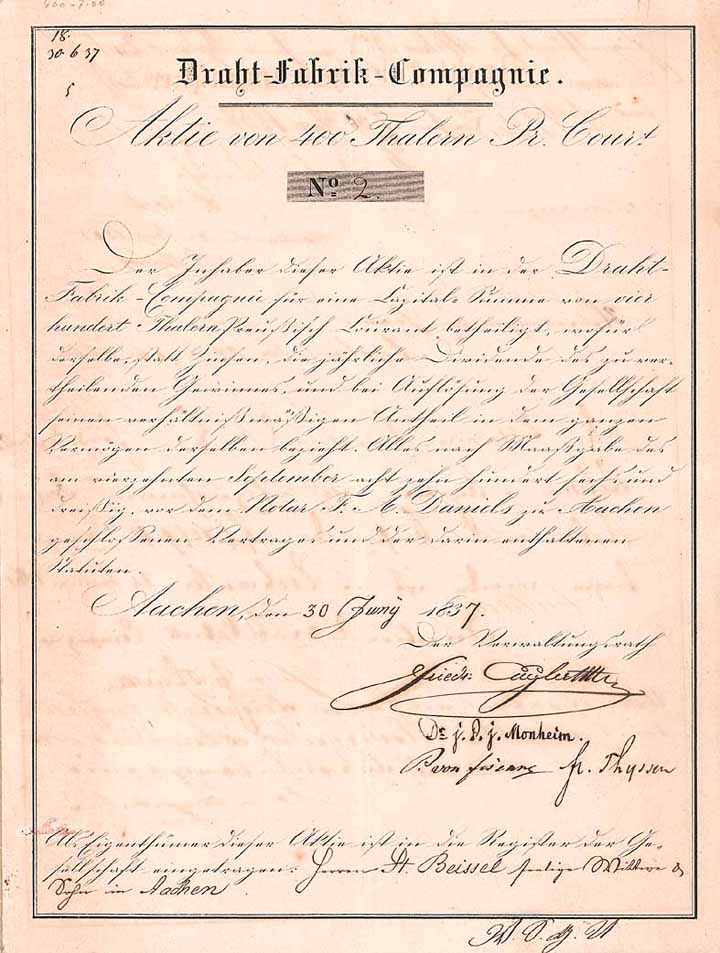 18.
30 6 37
5
Draht-Fabrik-Compagnie.
Aktie von 400 Thalern Pr. Cour.t
No 2.
Der Inhaber dieser Aktie ist in der Draht-
Fabrik-Compagnie für eine Capital-Summe von vier
hundert Thalern Preußisch Courant betheiligt, wofür
derselbe, statt Zinsen, die jährliche Dividende des zu ver-
theilenden Gewinnes, und bei Auflösung der Gesellschaft
seinen verhältnißmäßigen Antheil in dem ganzen
Vermögen derselben bezieht. Alles nach Maaßgabe des
am vierzehnten September acht zehn hundert sechs und
dreißig, vor dem Notar F. A. Daniels zu Aachen
geschlossenen Vertrages und der darin enthaltenen
Statuten.
Aachen, den 30 Juny 1837.
Der Verwaltungsrath
Friedr.
Dr. j. P. j. Monheim.
P. von fr. Thyssen
Als Eigenthümer dieser Aktie ist in die Register der Ge-
sellschaft eingetragen: Herrn St. Beissel seelige Wittwe &
Sohn in Aachen